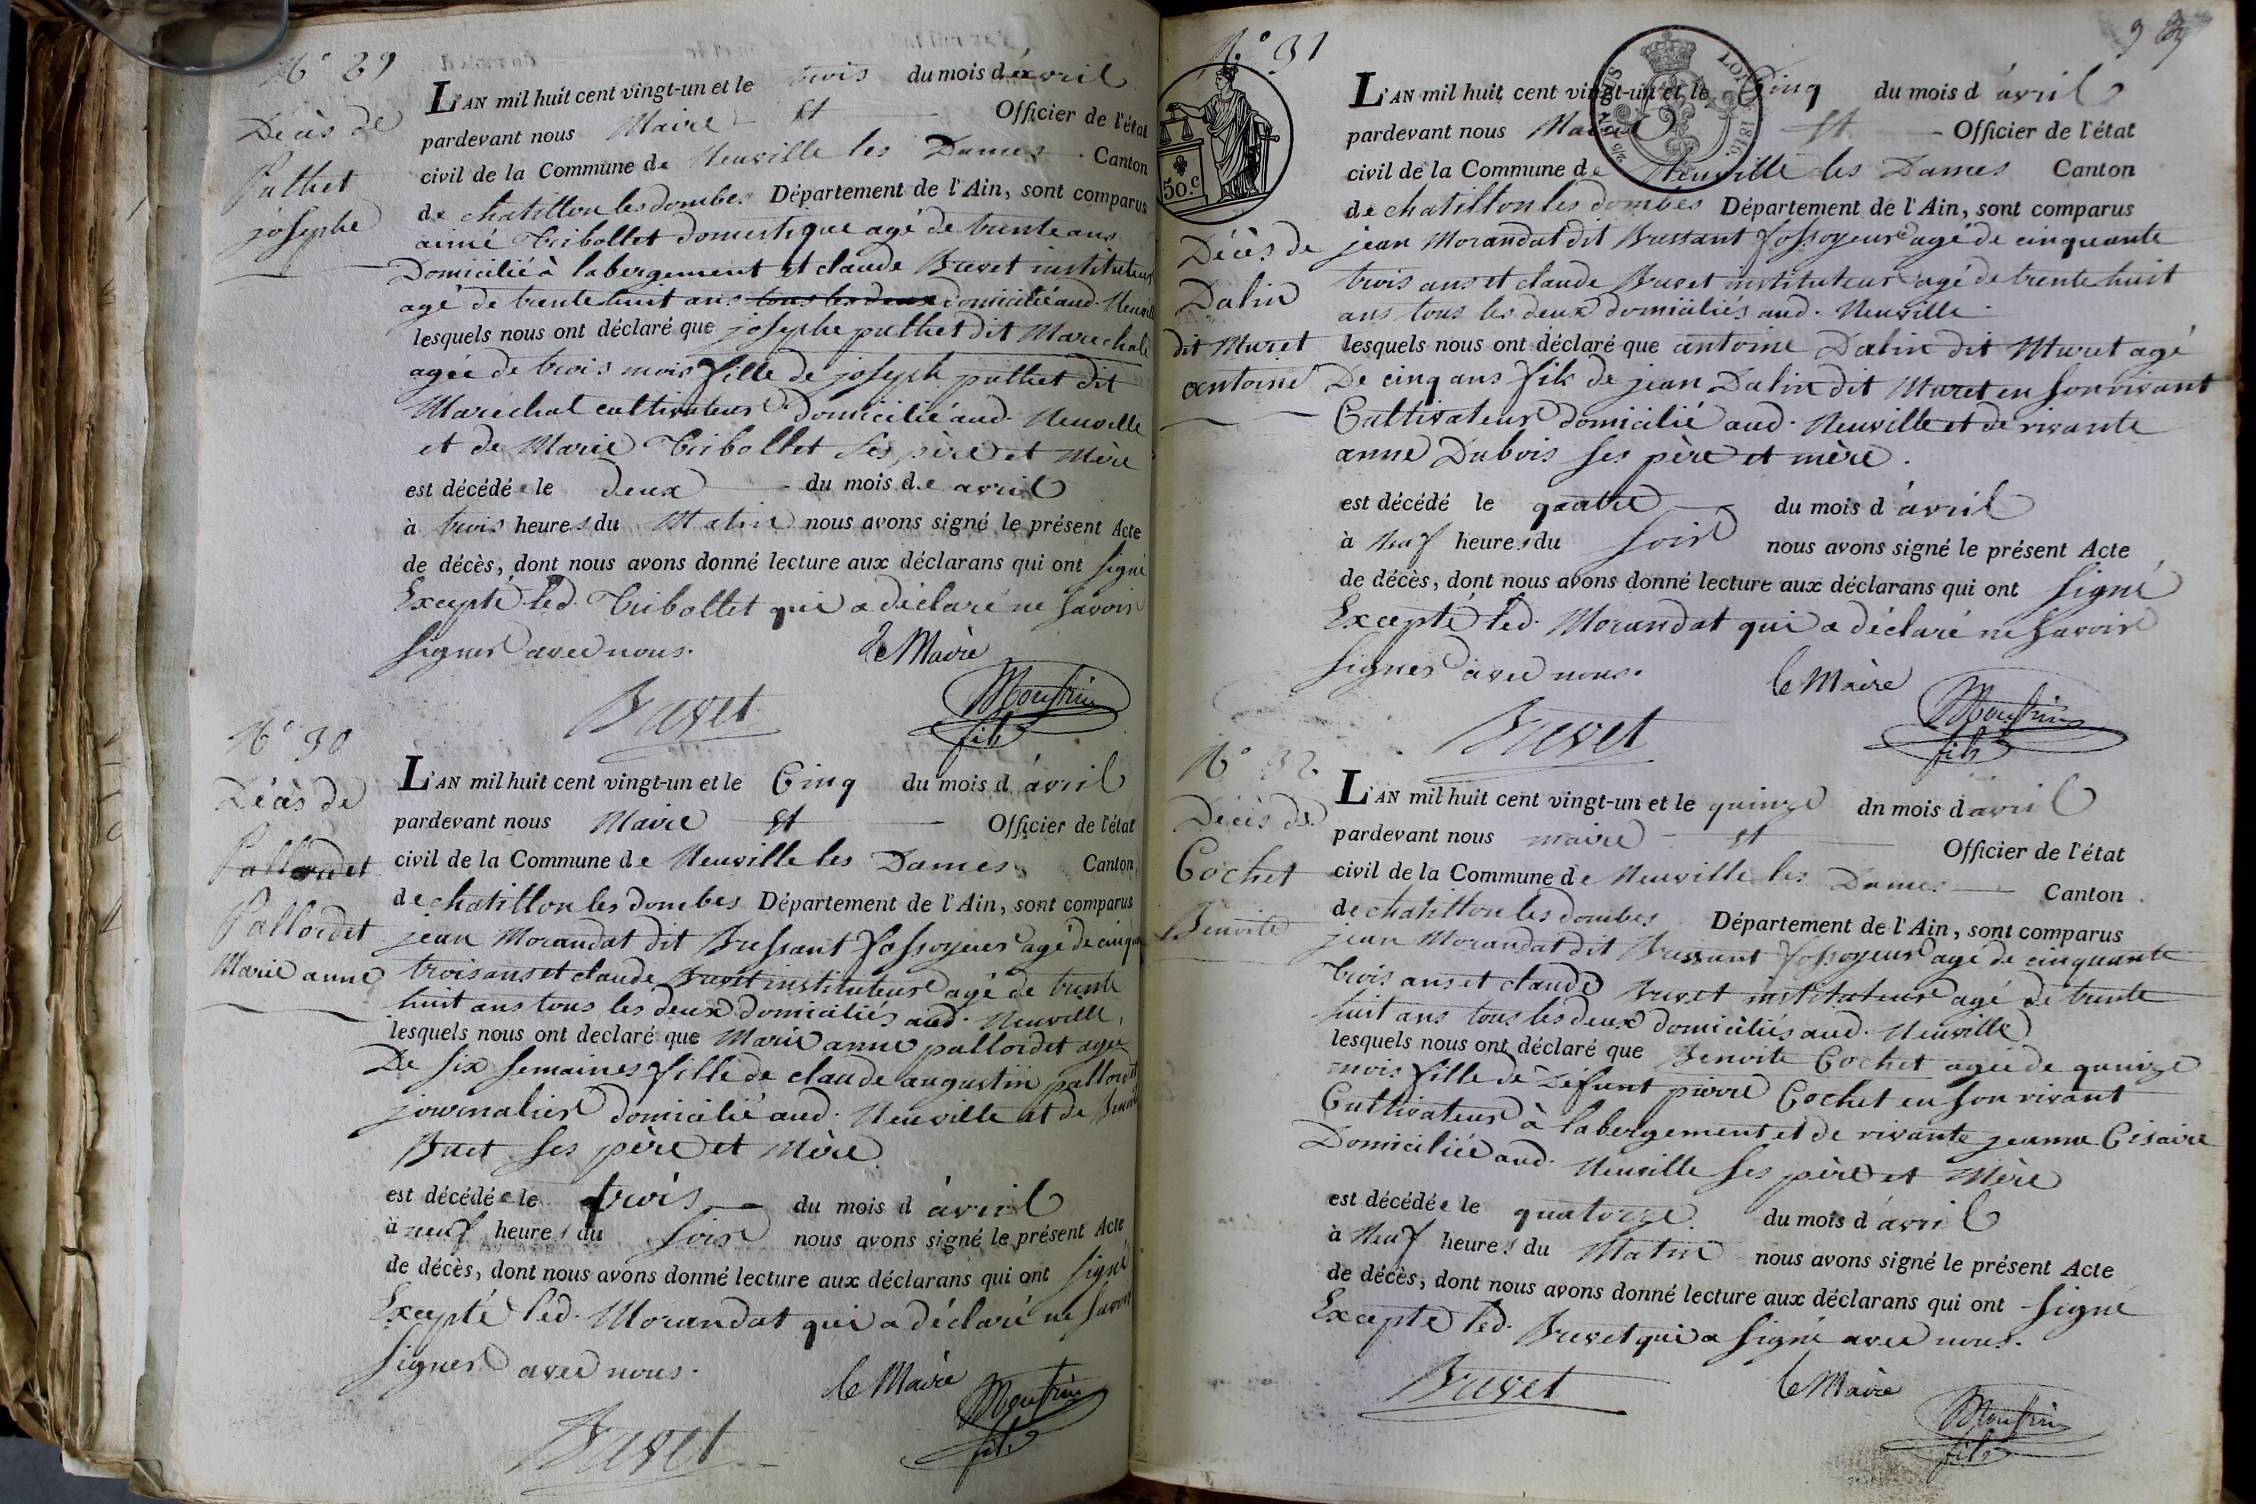 N° 29
Décès de
Puthet
josephe
L'AN mil huit cent vingt-un et le trois du mois d avril
pardevant nous Maire et Officier de l'état
civil de la Commune de Neuville les Dames Canton
de chatillon les dombes Département de l'Ain, sont comparus
aimé Tribollet domestique agé de trente ans
Domicilié à labergement et claude Buvet instituteur
agé de trente huit ans tous les deux domicilié aud. Neuville
lesquels nous ont déclaré que josephe puthet dit Marechal
agée de trois mois fille de joseph puthet dit
Maréchal cultivateur domicilié aud. Neuville
et de Marie Tribollet ses père et Mère
est décédée le deux du mois de avril
à trois heures du Matin nous avons signé le présent Acte
de décès, dont nous avons donné lecture aux déclarans qui ont signé
Excepté led. Tribollet qui a déclaré ne savoir
signer avec nous.
le Maire
Buvet
fils
N° 30
Décès de
Palloudet
Pallordet
Marie anne
L'AN mil huit cent vingt-un et le Cinq du mois d avril
pardevant nous Maire et Officier de l'état
civil de la Commune de Neuville les Dames Canton
de chatillon les dombes Département de l'Ain, sont comparus
jean Morandat dit Bressant fossoyeur agé de cinquante
trois ans et claude Buvet instituteur agé de trente
huit ans tous les deux domiciliés aud. Neuville,
lesquels nous ont declaré que Marie anne pallordet agée
De six semaines fille de claude augustin pallordet
journalier domicilié aud. Neuville et de
Buet ses père et Mère
est décédée le trois du mois d avril
à neuf heures du soir nous avons signé le présent Acte
de décès, dont nous avons donné lecture aux déclarans qui ont signé
Excepté led. Morandat qui a déclaré ne savoir
signer avec nous.
le Maire
Buvet
fils
N° 31
LOI 1816.
50.c
Décès de
Dalin
dit Muret
antoine
L'AN mil huit cent vingt-un et le Cinq du mois d avril
pardevant nous Maire et Officier de l'état
civil de la Commune de Neuville les Dames Canton
de chatillon les dombes Département de l'Ain, sont comparus
jean Morandat dit Bressant fossoyeur agé de cinquante
trois ans et claude Buvet instituteur agé de trente huit
ans tous les deux domiciliés aud. Neuville
lesquels nous ont déclaré que antoine Dalin dit Muret agé
De cinq ans fils de jean Dalin dit Muret en son vivant
Cultivateur domicilié aud. Neuville et de vivante
anne Dubois ses père et mère.
est décédé le quatre du mois d avril
à Neuf heures du soir nous avons signé le présent Acte
de décès, dont nous avons donné lecture aux déclarans qui ont signé
Excepté led. Morandat qui a déclaré ne savoir
signer avec nous.
le Maire
Buvet
fils
N° 32
Décès de
Cochet
Benoite
L'AN mil huit cent vingt-un et le quinze dn mois d avril
pardevant nous maire et Officier de l'état
civil de la Commune de Neuville les Dames Canton
de chatillon les dombes Département de l'Ain, sont comparus
jean Morandat dit Bressant fossoyeur agé de cinquante
trois ans et claude Buvet instituteur agé de trente
huit ans tous les deux domiciliés aud. Neuville
lesquels nous ont déclaré que Benoite Cochet agée de quinze
mois fille de Défunt pierre Cochet en son vivant
Cultivateur à labergement et de vivante jeanne Cisaire
Domiciliée aud. Neuville ses père et Mère
est décédée le quatorze du mois d avril
à Neuf heures du Matin nous avons signé le présent Acte
de décès, dont nous avons donné lecture aux déclarans qui ont signé
Excepté led. Buvet qui a signé avec nous.
le Maire
Buvet
fils